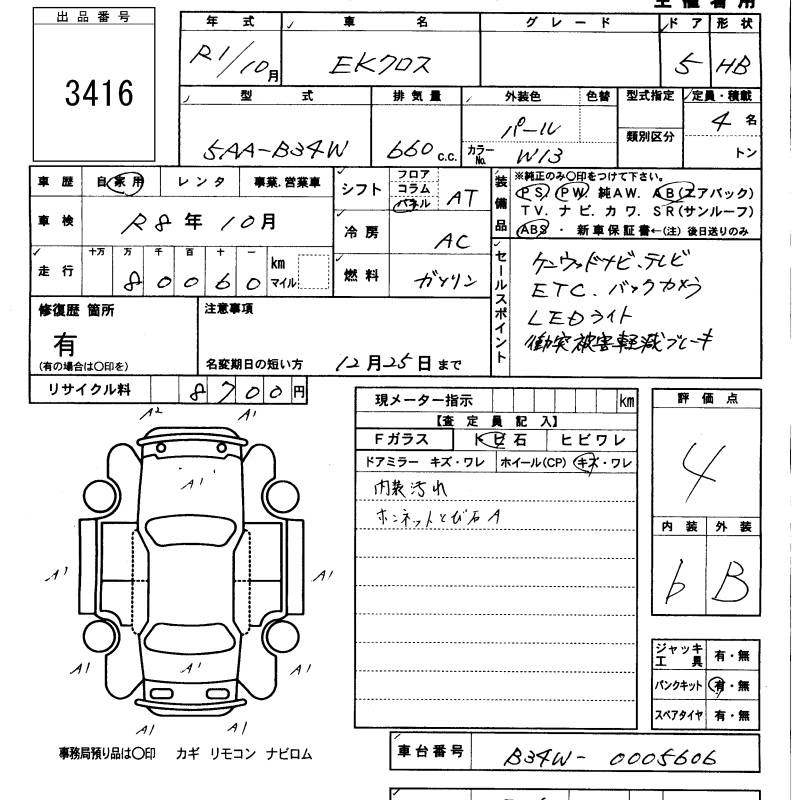 出品番号
3416
年式 車名 グレード ドア 形状
R1/10月 EKクロス 5 HB
型式 排気量 外装色 色替 型式指定 定員・積載
5AA-B34W 660 c.c. パール 4名
カラーNo. W13 類別区分 トン
車歴 自家用 レンタ 事業.営業車
シフト フロア コラム パネル AT
車検 R8年10月
冷房 AC
走行 十万 万 千 百 十 一
80060 km マイル
燃料 ガソリン
装備品 ※純正のみ〇印をつけて下さい。
PS PW. 純AW. AB(エアバック)
TV. ナビ. カワ. SR(サンルーフ)
ABS ・ 新車保証書←(注) 後日送りのみ
セールスポイント
ケンウッドナビ.テレビ
ETC. バックカメラ
LEDライト
衝突被害軽減ブレーキ
修復歴 箇所
有
(有の場合は〇印を)
注意事項
名変期日の短い方 12月25日まで
リサイクル料 8700円
現メーター指示 km
【査定員記入】
Fガラス トビ石 ヒビワレ
ドアミラー キズ・ワレ ホイール(CP) キズ・ワレ
内装汚れ
ボンネットとび石A
評価点
4
内装 外装
b B
A2 A1
A1
A1 A1
A1 A1 A1
A1 A1
ジャッキ工具 有・無
パンクキット 有・無
スペアタイヤ 有・無
事務局預り品は〇印 カギ リモコン ナビロム
車台番号 B34W-0005606